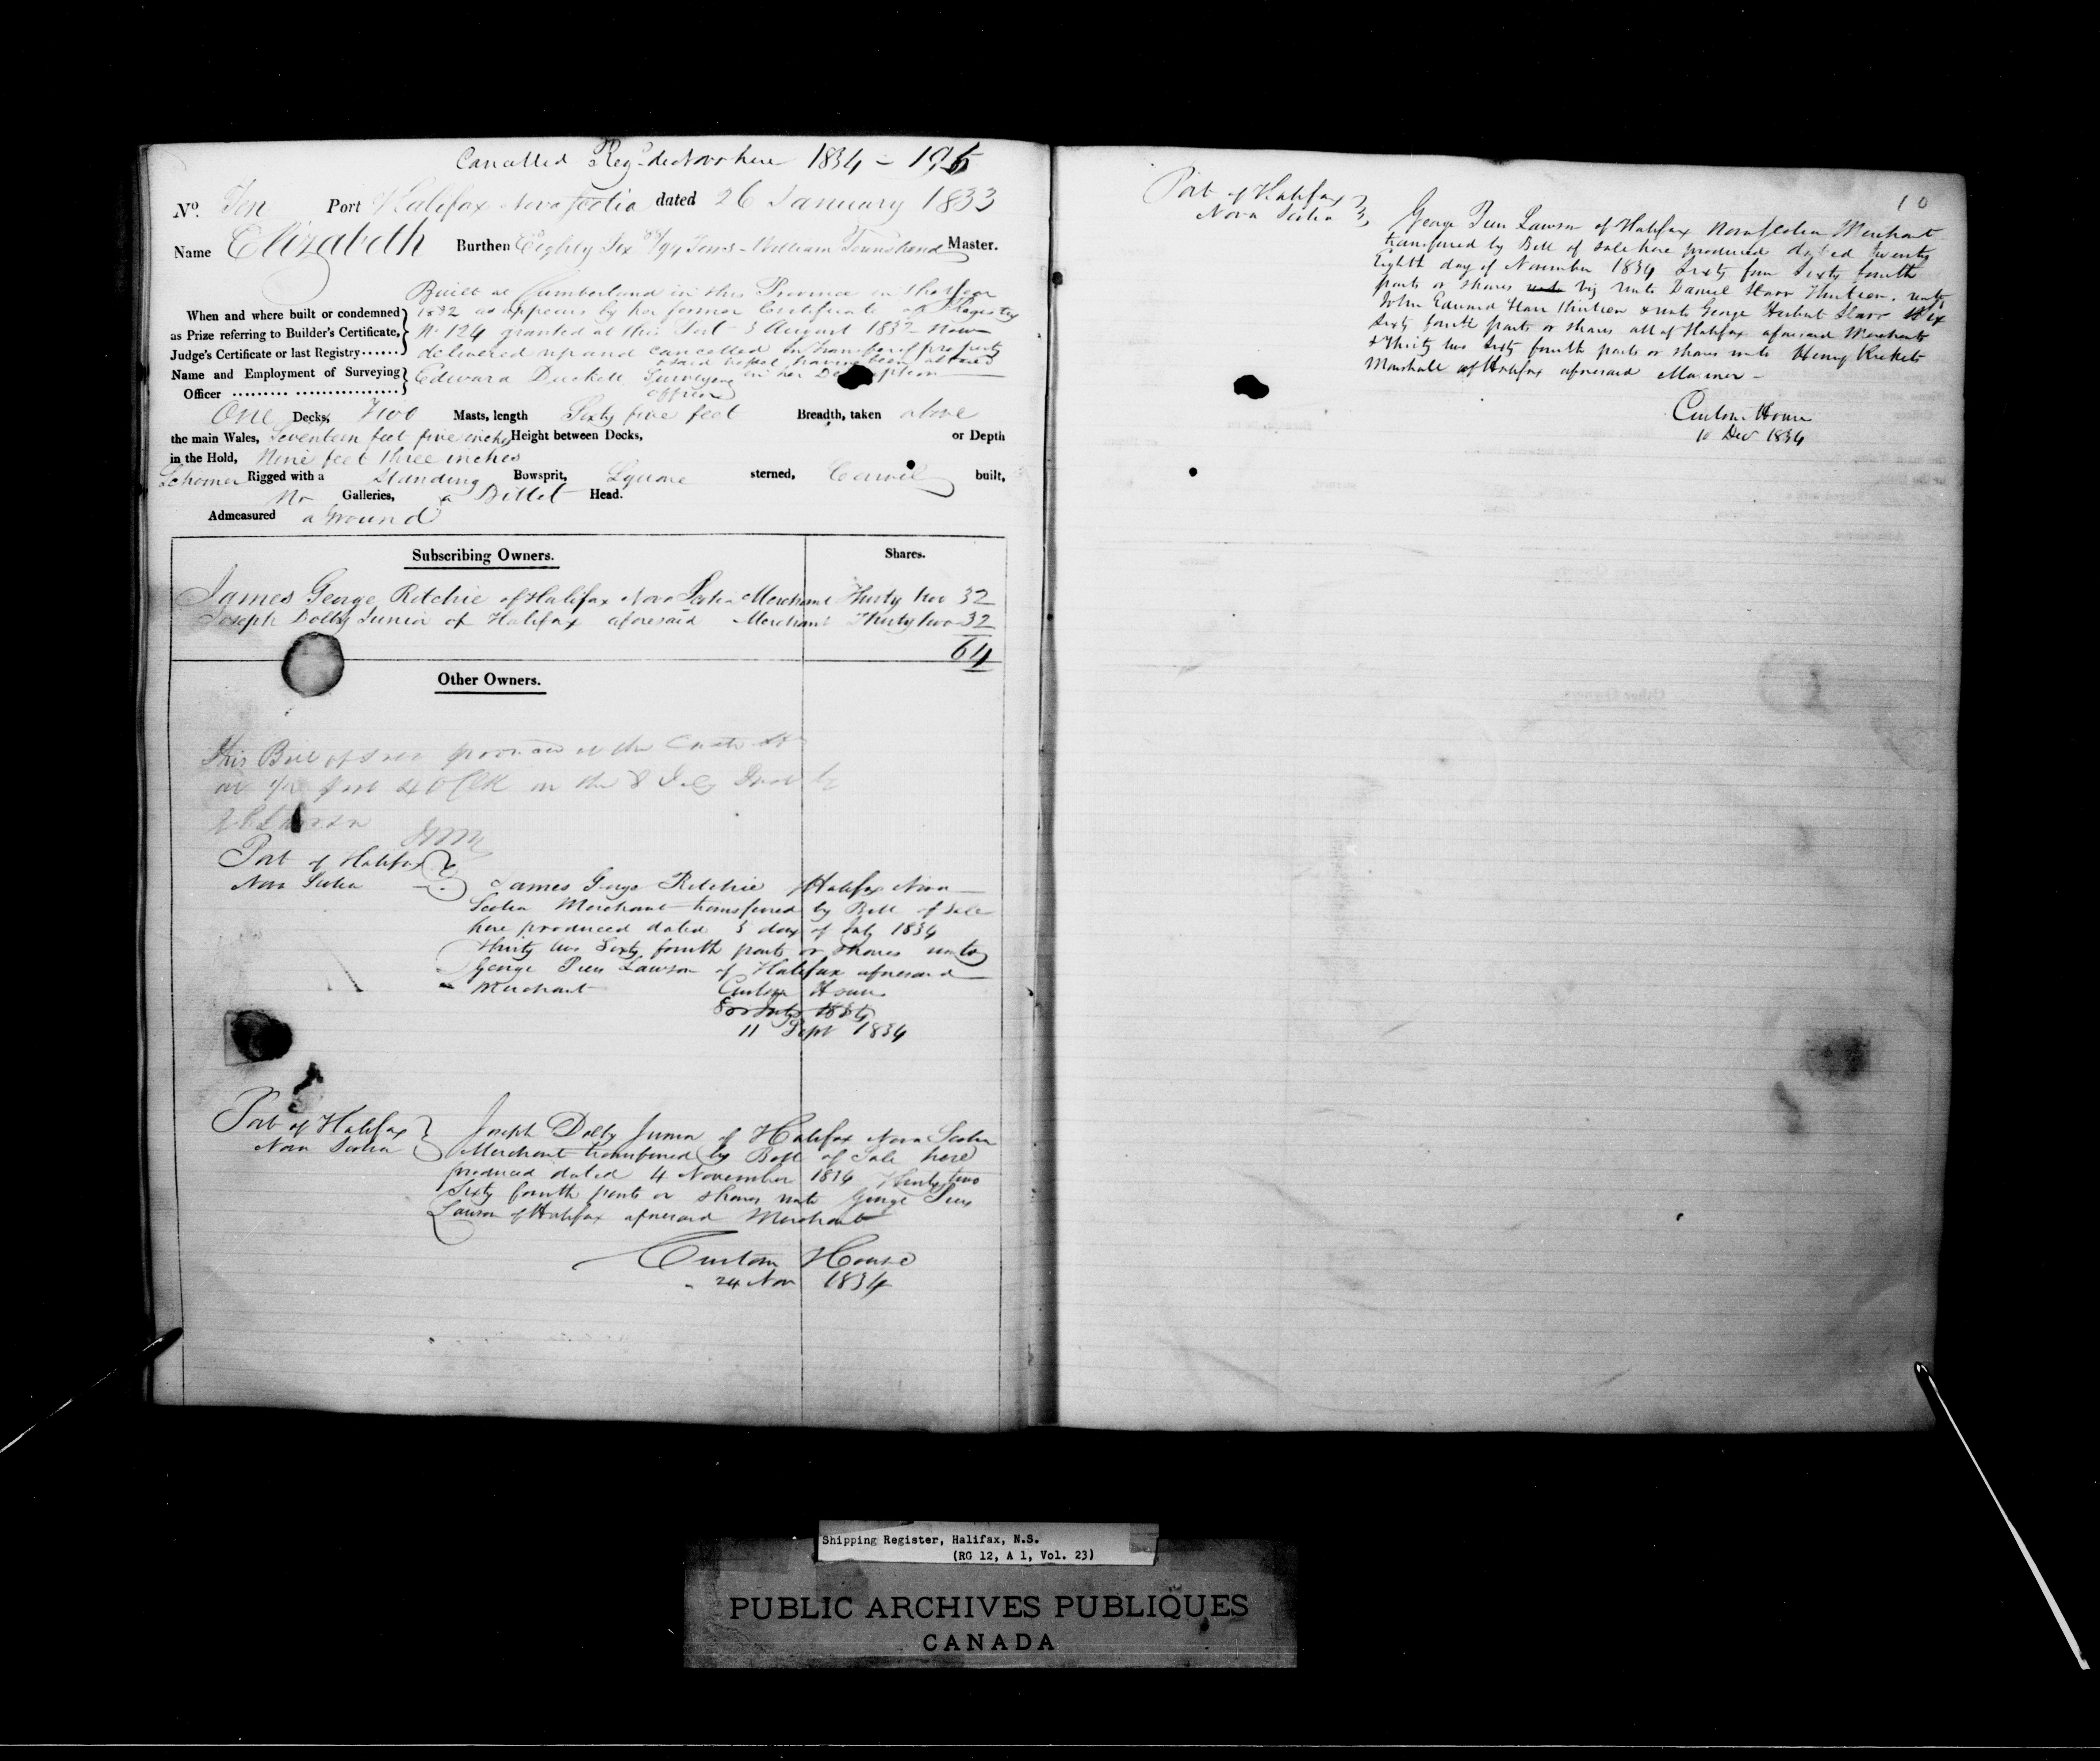 Cancelled Reg'd de Novo here 1834 - 195
No. Ten Port Halifax Nova Scotia dated 26 January 1833
Name Elizabeth Burthen Eighty Six /94 Tons - William Townshend Master.
Built at Cumberland in this Province in the Year
When and where built or condemned 1832 as appears by her former Certificate of Registry
as Prize referring to Builder's Certificate, No 124 granted at this Port 3 August 1832 now
Judge's Certificate or last Registry...... delivered up and cancelled on transfer of property
& said vessel having been altered
Name and Employment of Surveying Edward Duckett Surveying in her Description
Officer ......... ............... officer
One Decks, Two Masts, length Sixty five feet Breadth, taken above
the main Wales, Seventeen feet five inches Height between Decks, or Depth
in the Hold, Nine feet three inches
Schooner Rigged with a Standing Bowsprit, Square sterned, Carvel built,
No Galleries, a Billet Head.
Admeasured a Ground
Subscribing Owners. Shares.
James George Ritchie of Halifax Nova Scotia Merchant Thirty two 32
Joseph Dolby Junior of Halifax aforesaid Merchant Thirty two 32
64
Other Owners.
This Bill of Sale produced at the Custom
on the 8 July
Port of Halifax
Nova Scotia James George Ritchie of Halifax Nova
Scotia Merchant transferred by Bill of Sale
here produced dated 5 day of July 1834
thirty two Sixty fourth parts or shares unto
George Pien Lawson of Halifax aforesaid
Merchant Custom House
8 July 1834
11 Sept 1834
Port of Halifax Joseph Dolby Junior of Halifax Nova Scotia
Nova Scotia Merchant transferred by Bill of Sale here
produced dated 4 November 1834 Thirty two
Sixty fourth parts or shares unto George Pien
Lawson of Halifax aforesaid Merchant
Custom House
24 Nov 1834
10
Port of Halifax
Nova Scotia George Pien Lawson of Halifax Nova Scotia Merchant
transferred by Bill of Sale here produced dated twenty
Eighth day of November 1834 Sixty four Sixty fourth
parts or shares unto viz unto Daniel Starr Thirteen, unto
John Edward Starr thirteen & unto George Herbert Starr Six
Sixty fourth parts or shares all of Halifax aforesaid Merchants
& Thirty two Sixty fourth parts or shares unto Henry Ricketts
Marshall of Halifax aforesaid Mariner -
Custom House
10 Decr 1834
Shipping Register, Halifax, N.S.
(RG 12, A 1, Vol. 23)
PUBLIC ARCHIVES PUBLIQUES
CANADA